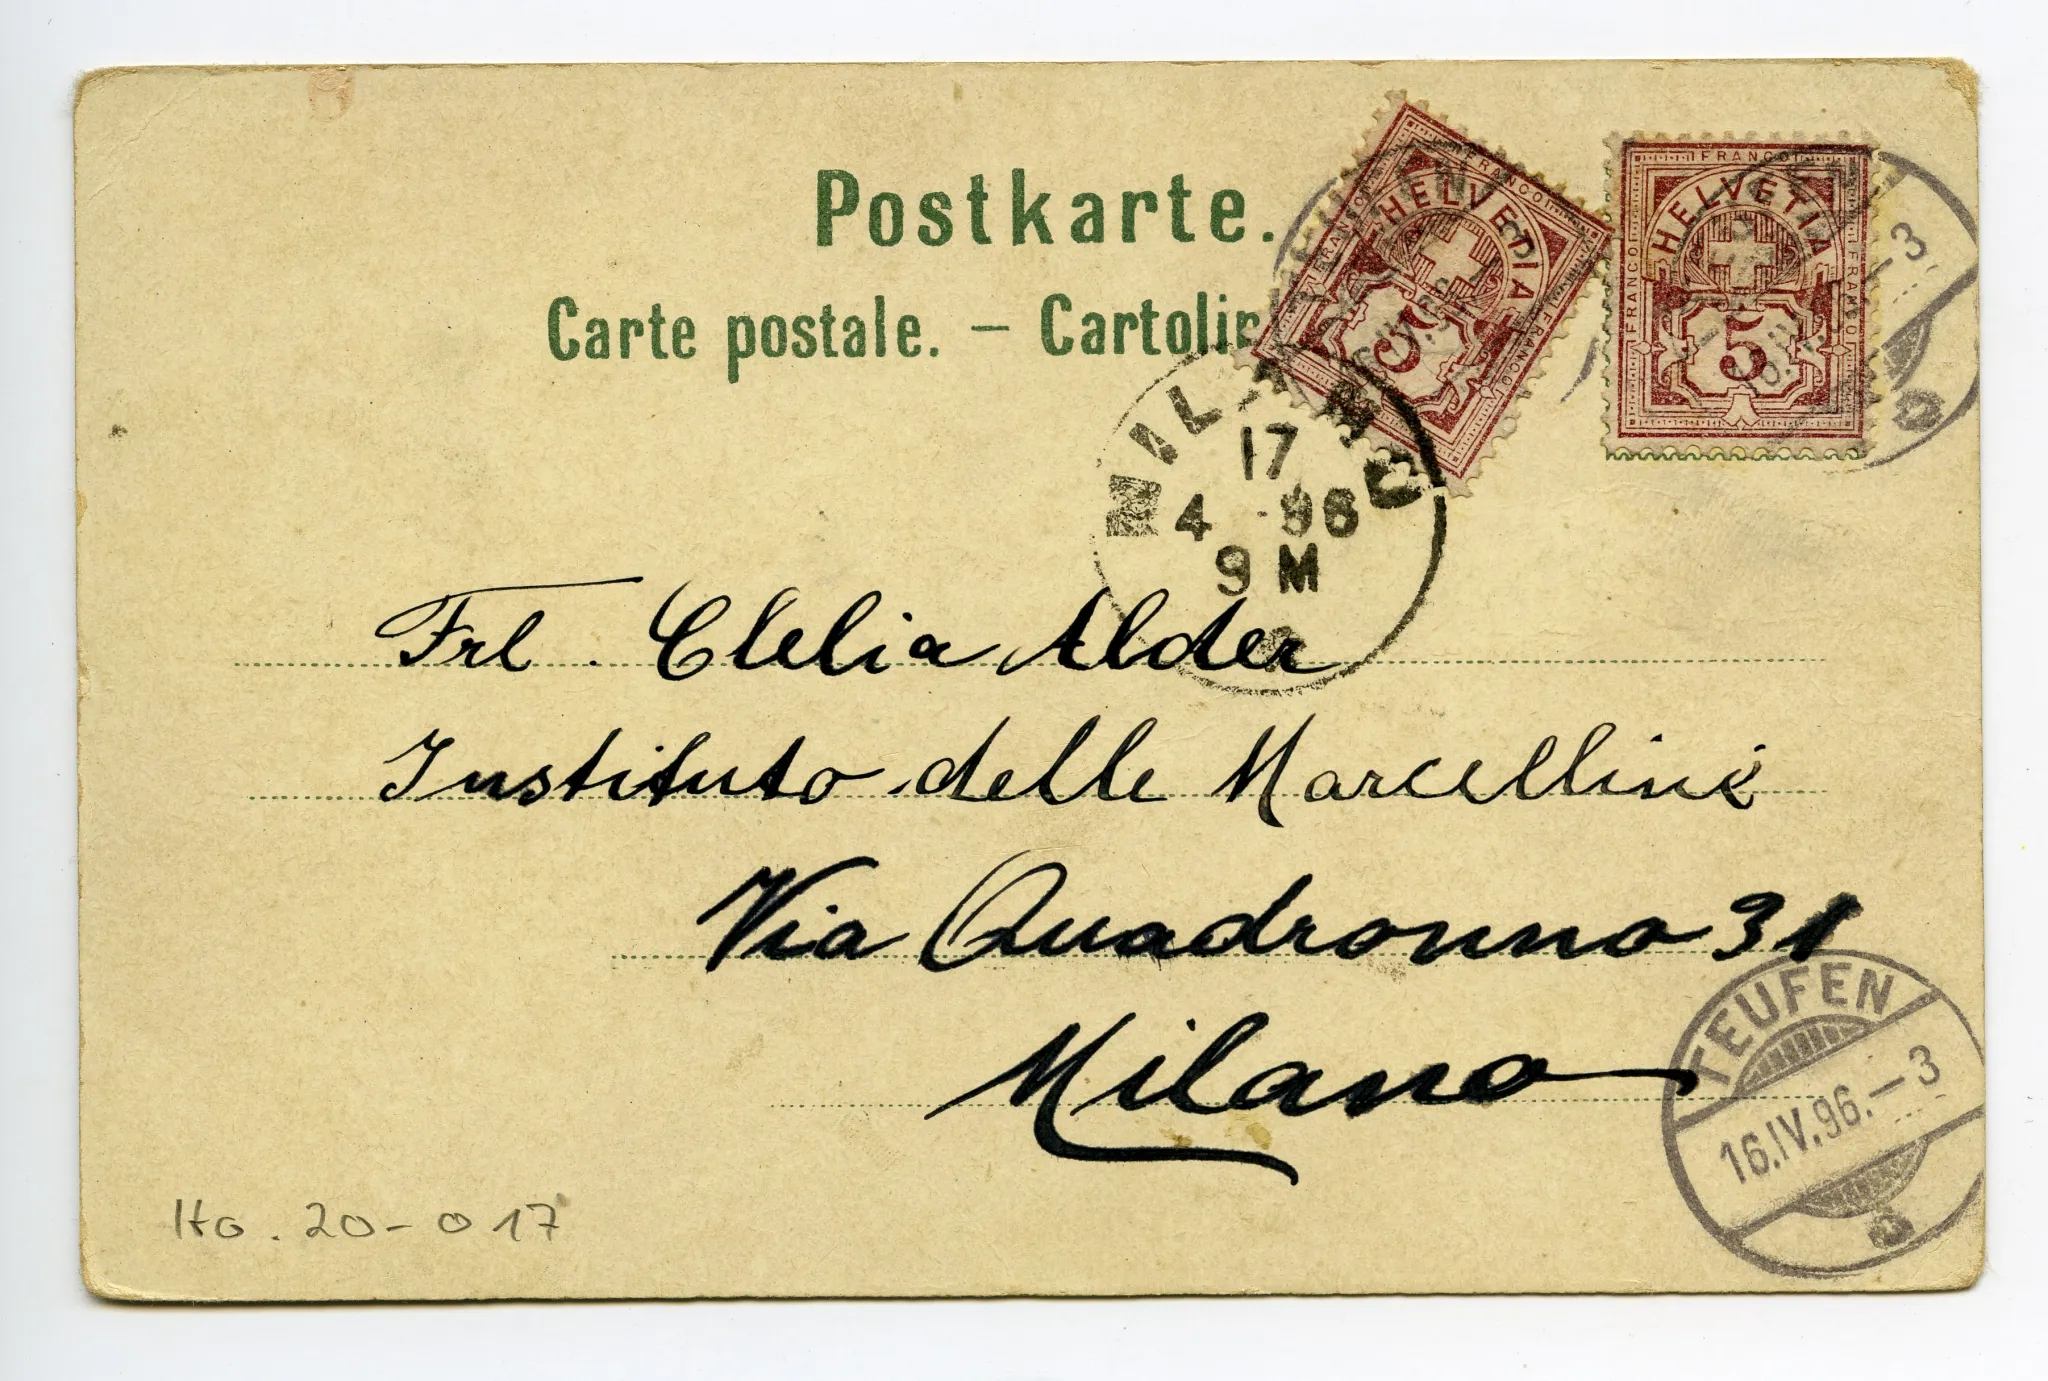 Postkarte.
Carte postale. – Cartolin
FRANCO
HELVETIA
FRANCO
FRANCO
5
FRANCO
HELVETIA
FRANCO
FRANCO
5
MILANO
17
4 96
9 M
Frl. Clelia Alder
Instituto delle Marcelline
Via Quadronno 31
Milano
TEUFEN
16.IV.96.–3
Ho. 20-017